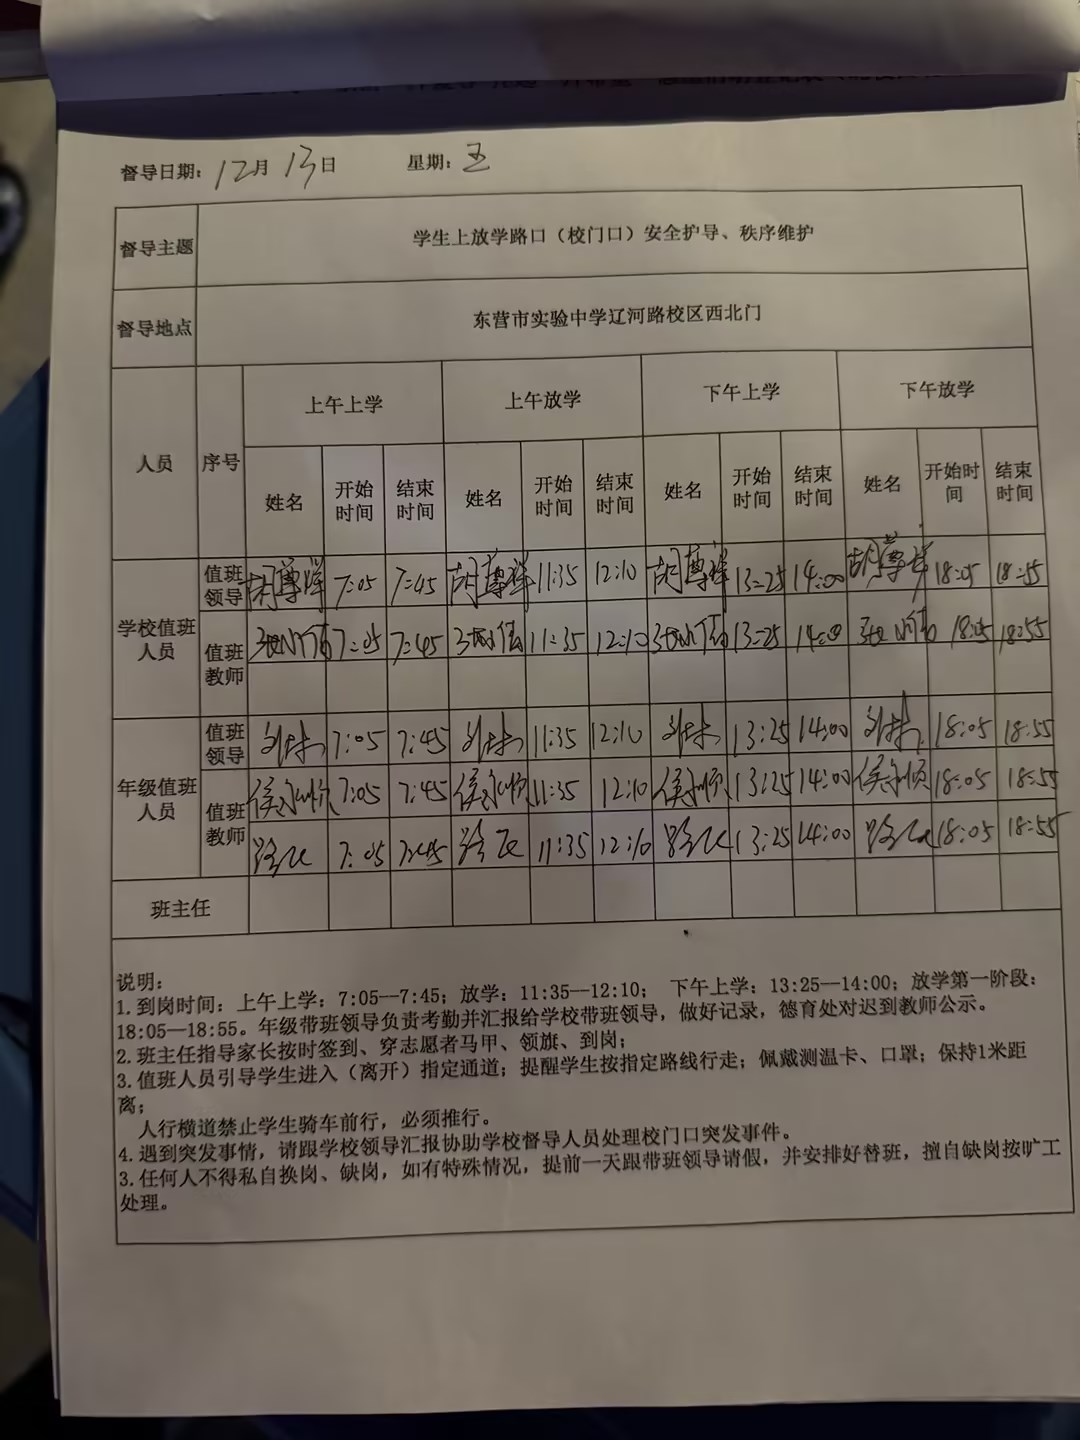 督导日期: 12月 13日 星期: 五
督导主题 学生上放学路口（校门口）安全护导、秩序维护
督导地点 东营市实验中学辽河路校区西北门
人员 序号 上午上学 上午放学 下午上学 下午放学
姓名 开始时间 结束时间 姓名 开始时间 结束时间 姓名 开始时间 结束时间 姓名 开始时间 结束时间
学校值班人员 值班领导 胡尊祥 7:05 7:45 胡尊祥 11:35 12:10 胡尊祥 13:25 14:00 胡尊祥 18:05 18:55
值班教师 7:05 7:45 11:35 12:10 13:25 14:00 18:05 18:55
年级值班人员 值班领导 刘林 7:05 7:45 刘林 11:35 12:10 刘林 13:25 14:00 刘林 18:05 18:55
值班教师 侯永顺 7:05 7:45 侯永顺 11:35 12:10 侯永顺 13:25 14:00 侯永顺 18:05 18:55
7:05 7:45 11:35 12:10 13:25 14:00 18:05 18:55
班主任
说明:
1.到岗时间：上午上学：7:05—7:45；放学：11:35—12:10； 下午上学：13:25—14:00；放学第一阶段：
18:05—18:55。年级带班领导负责考勤并汇报给学校带班领导，做好记录，德育处对迟到教师公示。
2.班主任指导家长按时签到、穿志愿者马甲、领旗、到岗；
3.值班人员引导学生进入（离开）指定通道；提醒学生按指定路线行走；佩戴测温卡、口罩；保持1米距
离；
人行横道禁止学生骑车前行，必须推行。
4.遇到突发事情，请跟学校领导汇报协助学校督导人员处理校门口突发事件。
3.任何人不得私自换岗、缺岗，如有特殊情况，提前一天跟带班领导请假，并安排好替班，擅自缺岗按旷工
处理。